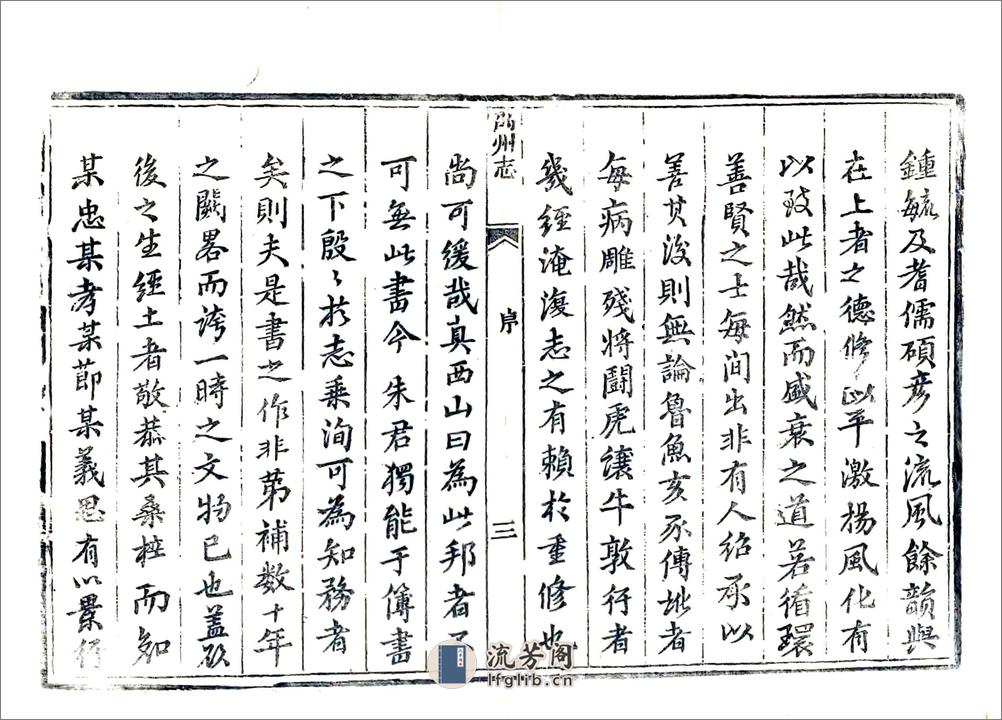 鍾毓及耆儒碩彥之流風餘韻與
在上者之德修政平激揚風化有
以致此哉然而盛衰之道若循環
善賢之士每間出非有人紹承以
善其後則無論魯魚亥豕傳訛者
每病雕殘將鬪虎讓牛敦行者
幾經淹沒志之有賴於重修也
尚可緩哉真西山曰為此邦者不
可無此書今朱君獨能于簿書
之下殷〻於志乘洵可為知務者
矣則夫是書之作非苐補數十年
之闕畧而誇一時之文物已也蓋欲
後之生經土者敬恭其桑梓而知
某忠某孝某節某義思有以景行
州志
序
三
流芳阁
lfglib.cn